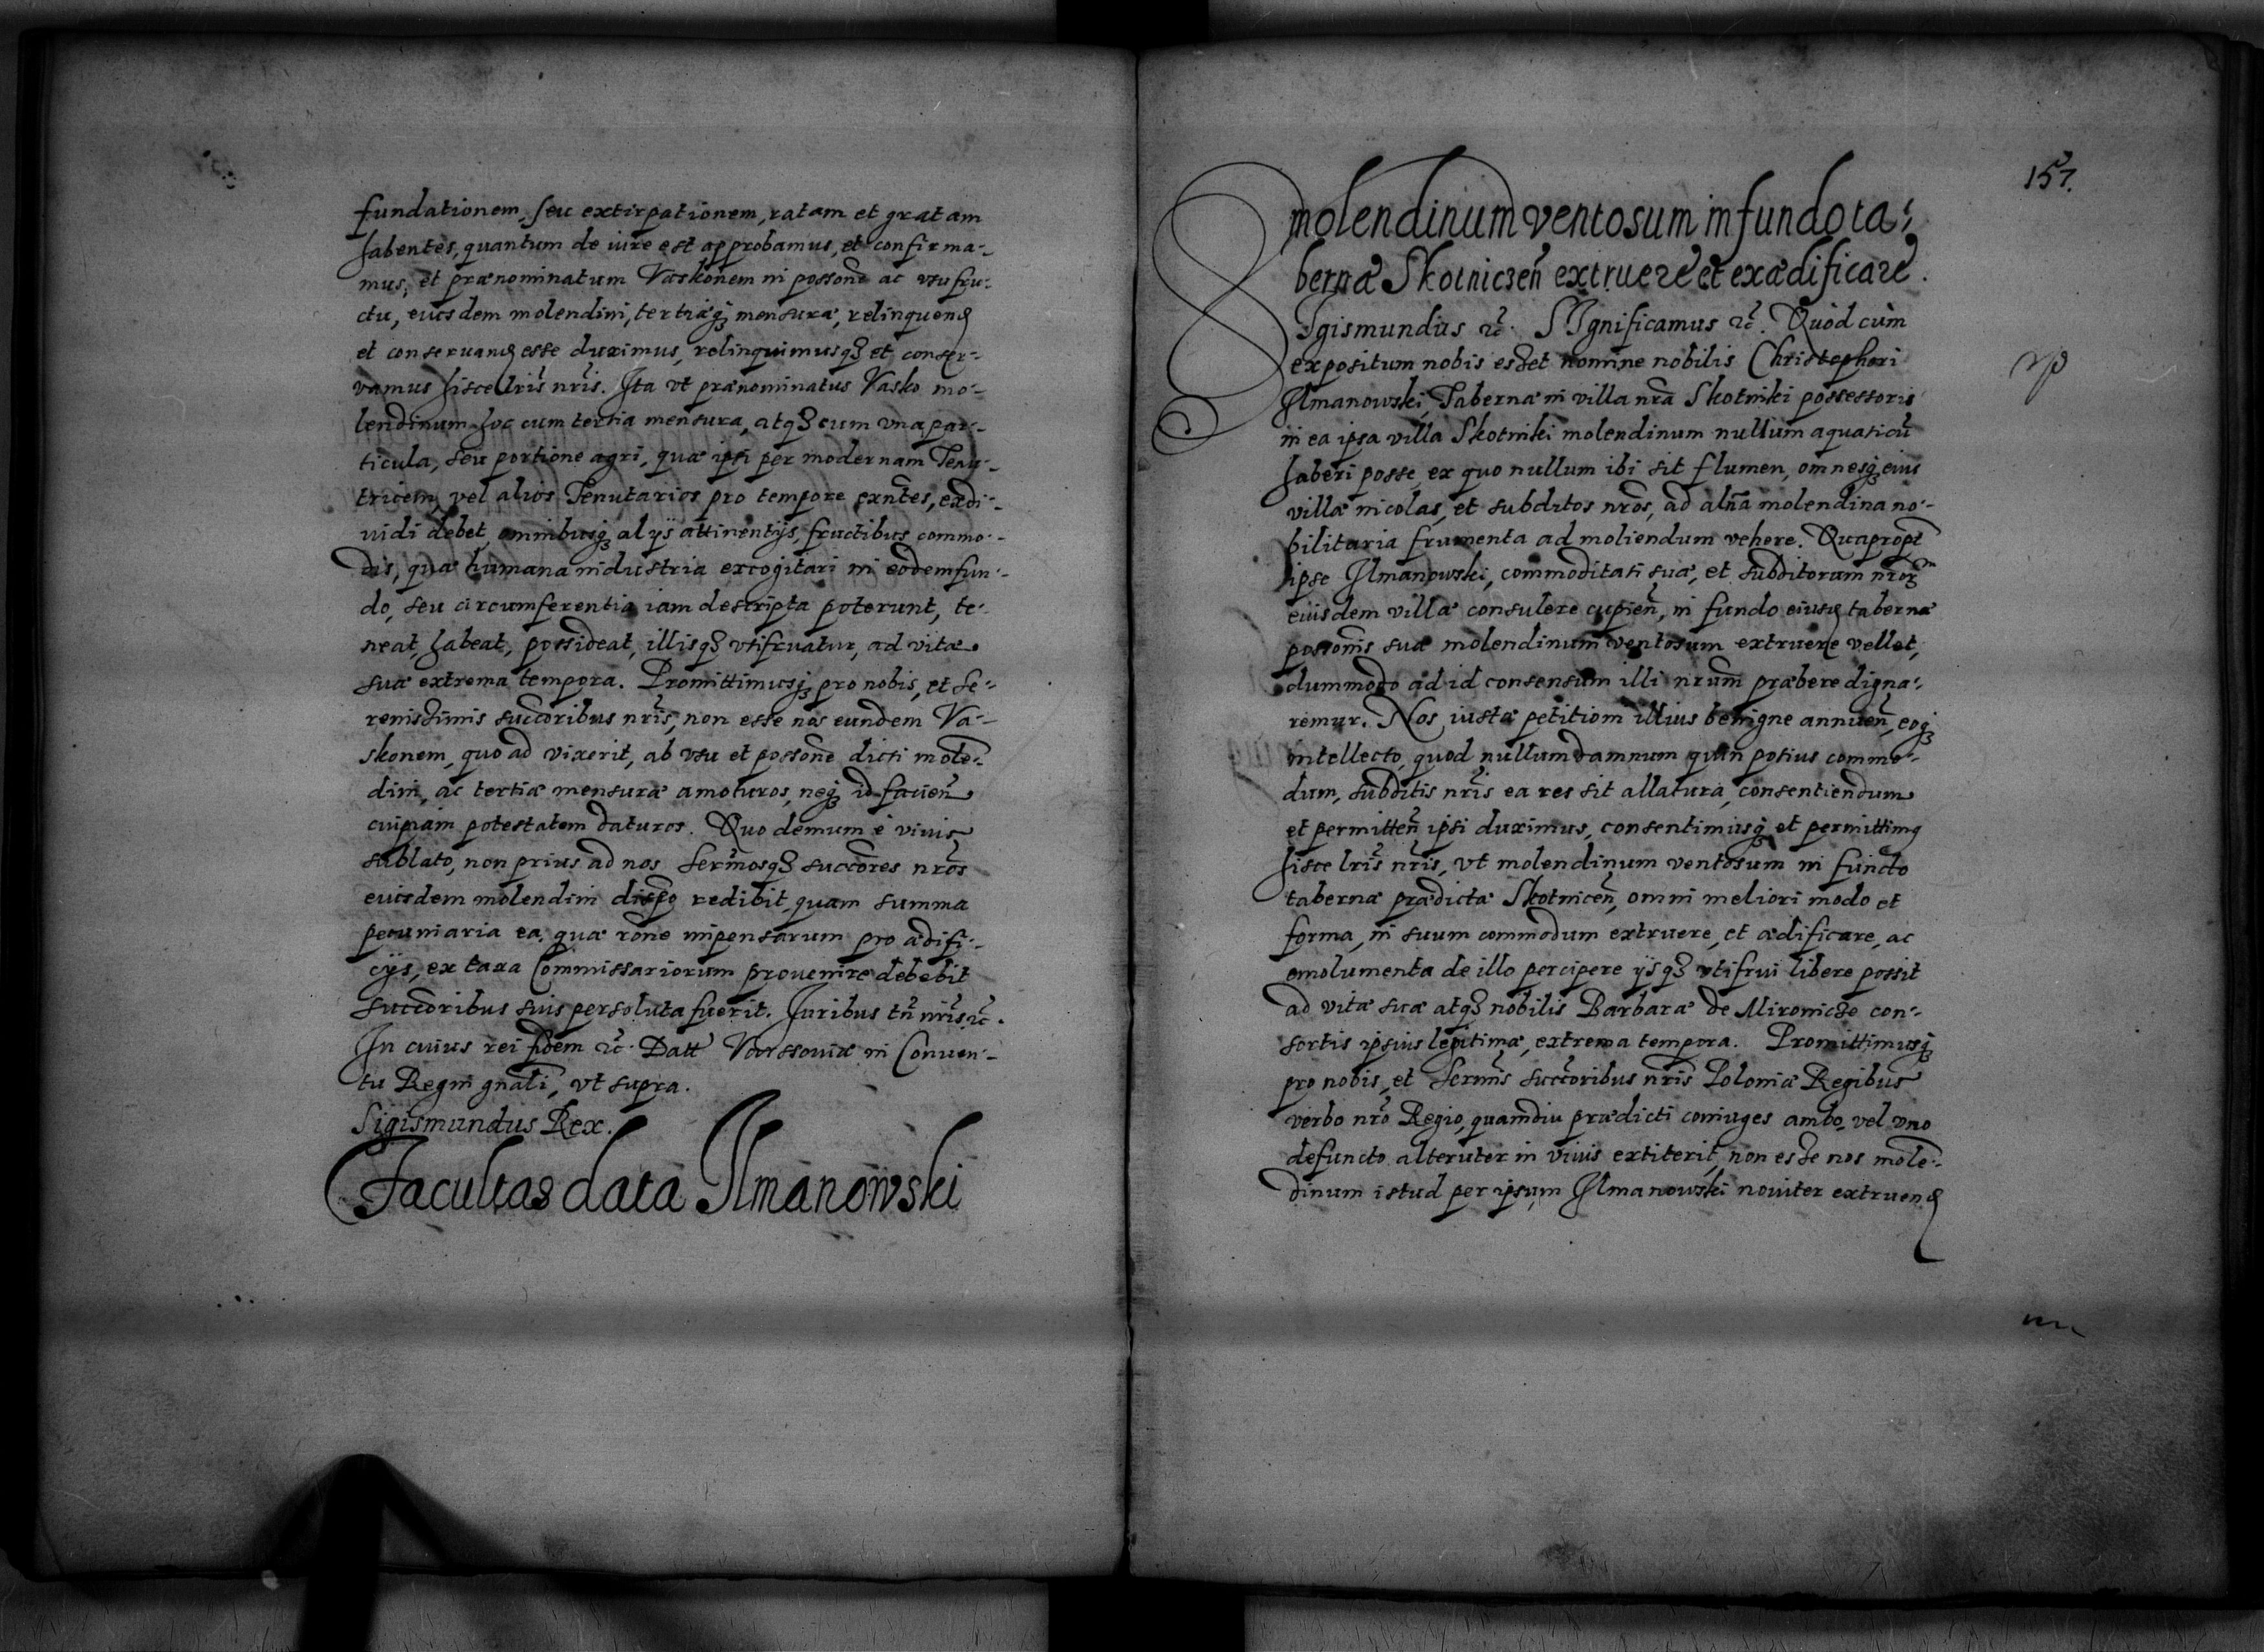 fundationem, seu extirpationem, ratam et gratam
habentes, quantum de iure est approbamus, et confirma-
mus, et prænominatum Vaskonem in possone ac usufru-
ctu, eiusdem molendini, tertiæq3 mensuræ, relinquend
et conseruand esse duximus, relinquimusq3 et conser-
vamus hisce lris nris. Ita vt prænominatus Vasko mo-
lendinum hoc cum tertia mensura, atq3 cum vna par-
ticula, seu portione agri, quæ ipsi per modernam Tenu-
tricem, vel alios Tenutarios pro tempore exntes, exdi-
uidi debet, omnibusq3 alijs attinentijs, fructibus commo-
dis, quæ humana industria excogitari in eodem fun-
do, seu circumferentia iam descripta poterunt, te-
neat, habeat, possideat, illisq3 vtifruatur, ad vitæ
suæ extrema tempora. Promittimusq3 pro nobis, et Se-
renissimis succoribus nris, non esse nos eundem Va-
skonem, quo ad vixerit, ab vsu et possone dicti molen-
dini, ac tertiæ mensuræ amoturos, neq3 id facien
cuipiam potestatem daturos. Quo demum è viuis
sublato, non prius ad nos Sermosq3 succores nros
eiusdem molendini dispo redibit, quam summa
pecuniaria ea, quæ rone impensarum pro ædifi-
cijs, ex taxa Commissariorum prouenire debebit
succoribus suis persoluta fuerit. Juribus tn nris &c.
In cuius rei fidem &c. Datt Varssouiæ in Conuen-
tu Regni gnali, vt supra.
Sigismundus Rex.
Facultas data Ilmanowski
157.
molendinum ventosum in fundo ta-
bernæ Skotniczen extruere et exædificare.
SIgismundus &c. SIgnificamus &c. Quòd cùm
expositum nobis esset nomine nobilis Christophori
Ilmanowski, Tabernæ in villa nra Skotniki possessoris
in ea ipsa villa Skotniki molendinum nullum aquaticu
haberi posse, ex quo nullum ibi sit flumen, omnesq3 eius
villæ incolas, et subditos nros, ad alna molendina no-
bilitaria frumenta ad moliendum vehere. Quapropt
ipse Ilmanowski, commoditati suæ, et subditorum nror
eiusdem villæ consulere cupien, in fundo eiusd tabernæ
possonis suæ molendinum ventosum extruere vellet,
dummodo ad id consensum illi nrum præbere digna-
remur. Nos iustæ petitioni illius benigne annuen, eoq3
intellecto, quod nullum damnum quin potius commo-
dum, subditis nris ea res sit allatura, consentiendum
et permitten ipsi duximus, consentimusq3 et permittimq
hisce lris nris, vt molendinum ventosum in fundo
tabernæ prædictæ Skotnicen, omni meliori modo et
forma, in suum commodum extruere, et ædificare, ac
emolumenta de illo percipere ijsq3 vtifrui libere possit
ad vitæ suæ atq3 nobilis Barbaræ de Mironicze con-
sortis ipsius legitimæ, extrema tempora. Promittimusq3
pro nobis, et Sermis succoribus nris Poloniæ Regibus
verbo nro Regio, quamdiu prædicti coniuges ambo, vel vno
defuncto alteruter in viuis extiterit, non esse nos molen-
dinum istud per ipsum Ilmanowski nouiter extruend